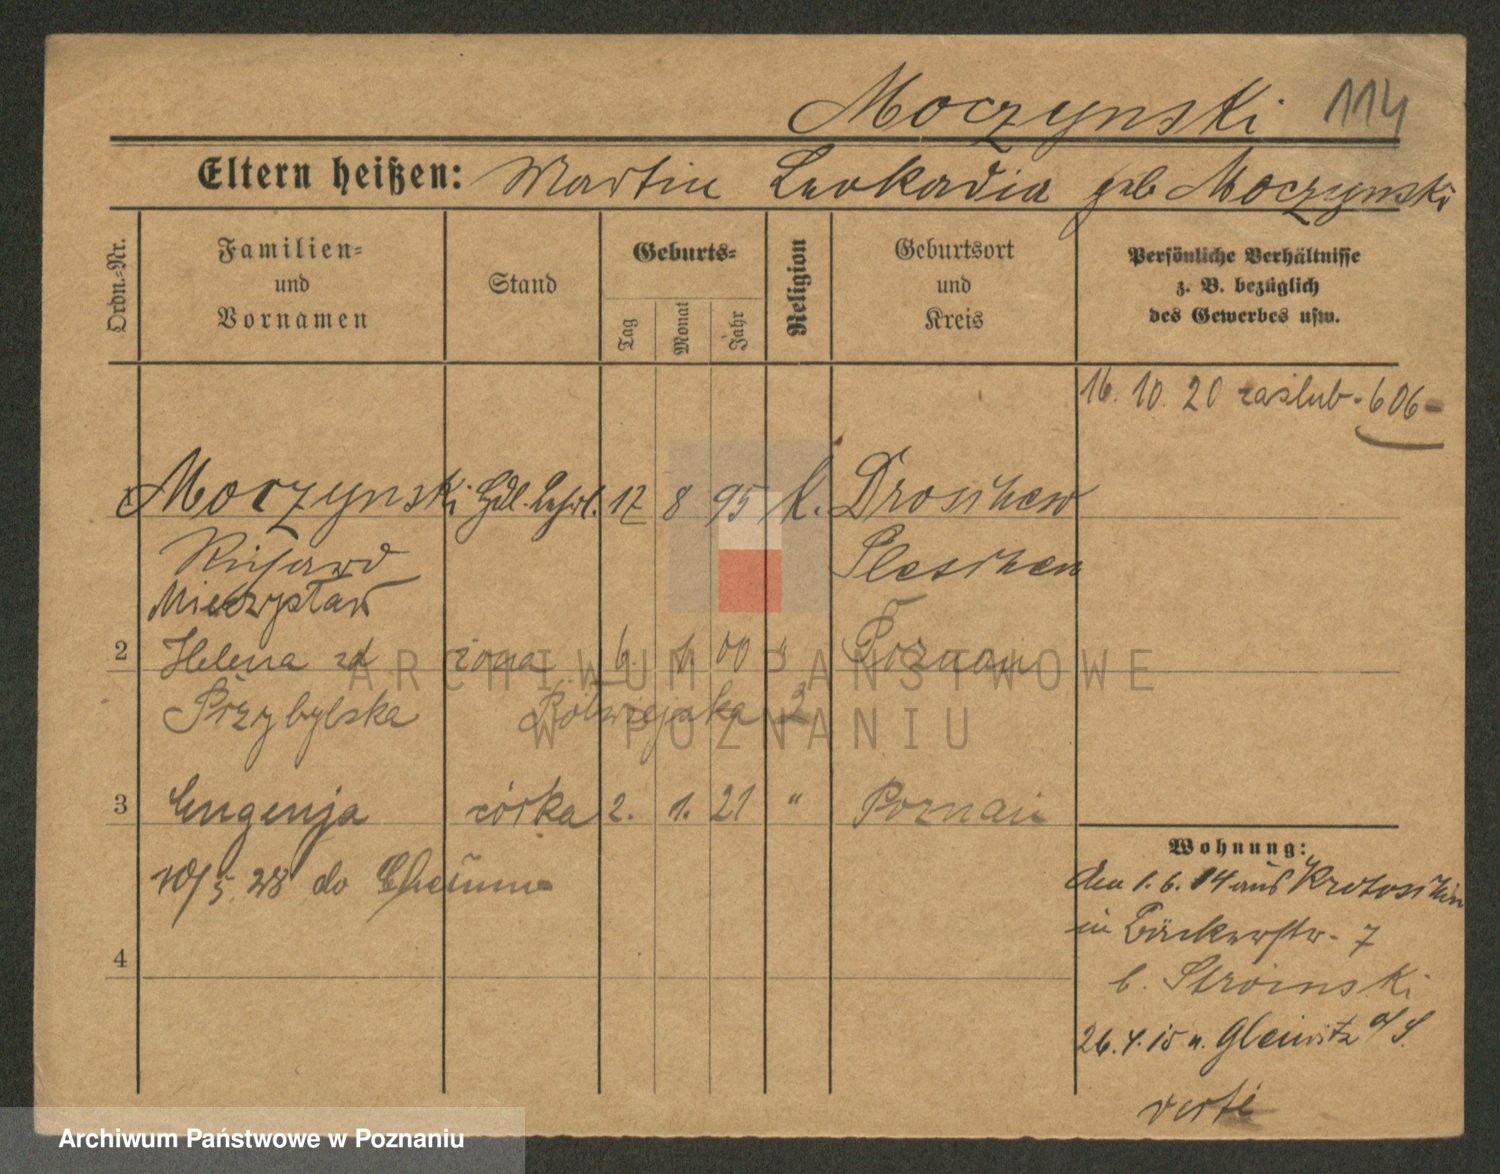 Moczynski 114
Eltern heißen: Martin Leokadia geb Moczynski
Ordn.-Nr.
Familien-
und
Vornamen
Stand
Geburts-
Tag
Monat
Jahr
Religion
Geburtsort
und
Kreis
Persönliche Verhältnisse
z. B. bezüglich
des Gewerbes usw.
16. 10. 20 zaślub. 606
Moczynski Hdl. Lehrl. 17 8 95 k. Droschew
Richard Pleschen
Mieczysław
2 Helena zd żona 6. 1. 00 " Poznań
Przybylska Półwiejska 2
3 Eugenja córka 2. 1. 21 " Poznań
10/5 28 do
4
Wohnung:
den 1. 6. 14 aus Krotoschin
in Bäckerstr. 7
b. Stroinski
26. 4. 15 n. Gleiwitz o/S.
verte
ARCHIWUM PAŃSTWOWE
W POZNANIU
Archiwum Państwowe w Poznaniu